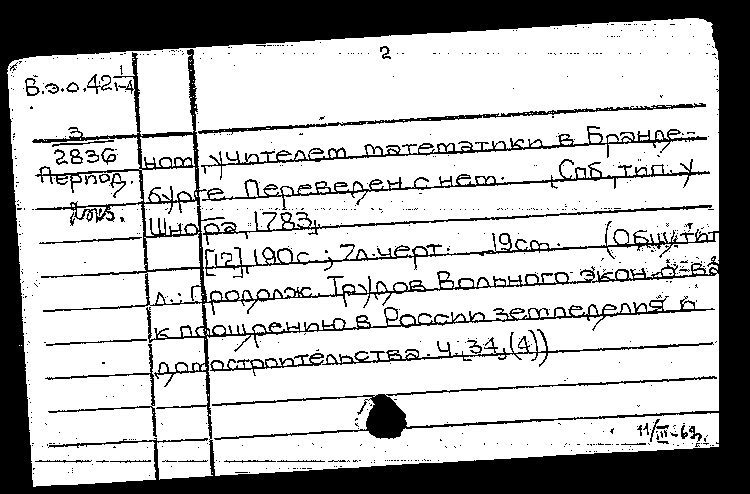 2
В.э.о.42 1/1-4
3
2836
Период.
экз.
ном, учителем математики в Бранде-
бурге. Переведен с нем. Спб., тип. у
Шнора, 1783.
[12], 190с.; 7л. черт. 19см. (Общ. тит.
л.: Продолж. Трудов Вольного экон. о-ва
к поощрению в России земледелия и
домостроительства. Ч. 34, (4))
11/III-69г.